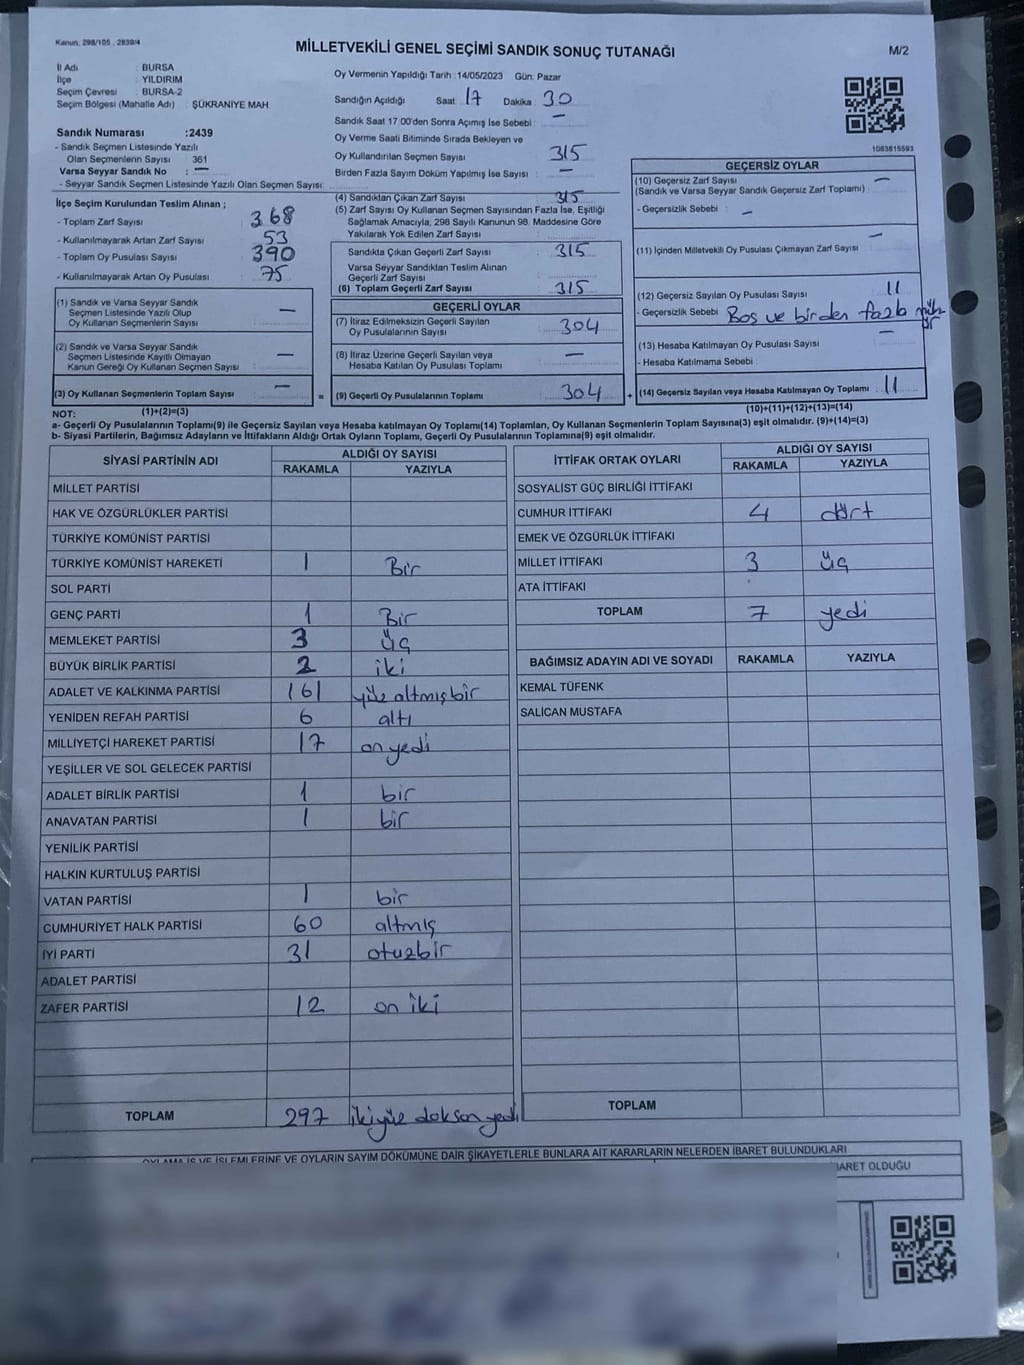 Kanun; 298/105 , 2839/4
MİLLETVEKİLİ GENEL SEÇİMİ SANDIK SONUÇ TUTANAĞI
M/2
İl Adı : BURSA
İlçe : YILDIRIM
Seçim Çevresi : BURSA-2
Seçim Bölgesi (Mahalle Adı) : ŞÜKRANİYE MAH
Sandık Numarası :2439
- Sandık Seçmen Listesinde Yazılı
Olan Seçmenlerin Sayısı 361
Varsa Seyyar Sandık No : —
- Seyyar Sandık Seçmen Listesinde Yazılı Olan Seçmen Sayısı:
İlçe Seçim Kurulundan Teslim Alınan ;
- Toplam Zarf Sayısı 368
- Kullanılmayarak Artan Zarf Sayısı 53
- Toplam Oy Pusulası Sayısı 390
- Kullanılmayarak Artan Oy Pusulası 75
(1) Sandık ve Varsa Seyyar Sandık
Seçmen Listesinde Yazılı Olup
Oy Kullanan Seçmenlerin Sayısı —
(2) Sandık ve Varsa Seyyar Sandık
Seçmen Listesinde Kayıtlı Olmayan
Kanun Gereği Oy Kullanan Seçmen Sayısı —
(3) Oy Kullanan Seçmenlerin Toplam Sayısı —
Oy Vermenin Yapıldığı Tarih :14/05/2023 Gün: Pazar
Sandığın Açıldığı Saat 17 Dakika : 30
Sandık Saat 17:00'den Sonra Açımış İse Sebebi : —
Oy Verme Saati Bitiminde Sırada Bekleyen ve
Oy Kullandırılan Seçmen Sayısı 315
Birden Fazla Sayım Döküm Yapılmış İse Sayısı : —
(4) Sandıktan Çıkan Zarf Sayısı 315
(5) Zarf Sayısı Oy Kullanan Seçmen Sayısından Fazla İse, Eşitliği
Sağlamak Amacıyla; 298 Sayılı Kanunun 98. Maddesine Göre
Yakılarak Yok Edilen Zarf Sayısı
Sandıkta Çıkan Geçerli Zarf Sayısı 315
Varsa Seyyar Sandıktan Teslim Alınan
Geçerli Zarf Sayısı
(6) Toplam Geçerli Zarf Sayısı : 315
GEÇERLİ OYLAR
(7) İtiraz Edilmeksizin Geçerli Sayılan
Oy Pusulalarının Sayısı : 304
(8) İtiraz Üzerine Geçerli Sayılan veya
Hesaba Katılan Oy Pusulası Toplamı —
= (9) Geçerli Oy Pusulalarının Toplamı 304
1083815593
GEÇERSİZ OYLAR
(10) Geçersiz Zarf Sayısı —
(Sandık ve Varsa Seyyar Sandık Geçersiz Zarf Toplamı)
- Geçersizlik Sebebi : —
(11) İçinden Milletvekili Oy Pusulası Çıkmayan Zarf Sayısı —
(12) Geçersiz Sayılan Oy Pusulası Sayısı 11
- Geçersizlik Sebebi Boş ve birden fazla
(13) Hesaba Katılmayan Oy Pusulası Sayısı —
- Hesaba Katılmama Sebebi
+ (14) Geçersiz Sayılan veya Hesaba Katılmayan Oy Toplamı : 11
NOT: (1)+(2)=(3) (10)+(11)+(12)+(13)=(14)
a- Geçerli Oy Pusulalarının Toplamı(9) ile Geçersiz Sayılan veya Hesaba Katılmayan Oy Toplamı(14) Toplamları, Oy Kullanan Seçmenlerin Toplam Sayısına(3) eşit olmalıdır. (9)+(14)=(3)
b- Siyasi Partilerin, Bağımsız Adayların ve İttifakların Aldığı Ortak Oyların Toplamı, Geçerli Oy Pusulalarının Toplamına(9) eşit olmalıdır.
SİYASİ PARTİNİN ADI ALDIĞI OY SAYISI
RAKAMLA YAZIYLA
MİLLET PARTİSİ
HAK VE ÖZGÜRLÜKLER PARTİSİ
TÜRKİYE KOMÜNİST PARTİSİ
TÜRKİYE KOMÜNİST HAREKETİ 1 Bir
SOL PARTİ
GENÇ PARTİ 1 Bir
MEMLEKET PARTİSİ 3 üç
BÜYÜK BİRLİK PARTİSİ 2 iki
ADALET VE KALKINMA PARTİSİ 161 yüz altmışbir
YENİDEN REFAH PARTİSİ 6 altı
MİLLİYETÇİ HAREKET PARTİSİ 17 on yedi
YEŞİLLER VE SOL GELECEK PARTİSİ
ADALET BİRLİK PARTİSİ 1 bir
ANAVATAN PARTİSİ 1 bir
YENİLİK PARTİSİ
HALKIN KURTULUŞ PARTİSİ
VATAN PARTİSİ 1 bir
CUMHURİYET HALK PARTİSİ 60 altmış
İYİ PARTİ 31 otuzbir
ADALET PARTİSİ
ZAFER PARTİSİ 12 on iki
TOPLAM 297 ikiyüz doksan yedi
İTTİFAK ORTAK OYLARI ALDIĞI OY SAYISI
RAKAMLA YAZIYLA
SOSYALİST GÜÇ BİRLİĞİ İTTİFAKI
CUMHUR İTTİFAKI 4 dört
EMEK VE ÖZGÜRLÜK İTTİFAKI
MİLLET İTTİFAKI 3 üç
ATA İTTİFAKI
TOPLAM 7 yedi
BAĞIMSIZ ADAYIN ADI VE SOYADI RAKAMLA YAZIYLA
KEMAL TÜFENK
SALİCAN MUSTAFA
TOPLAM
OYLAMA İŞ VE İŞLEMLERİNE VE OYLARIN SAYIM DÖKÜMÜNE DAİR ŞİKAYETLERLE BUNLARA AİT KARARLARIN NELERDEN İBARET BULUNDUKLARI
İBARET OLDUĞU